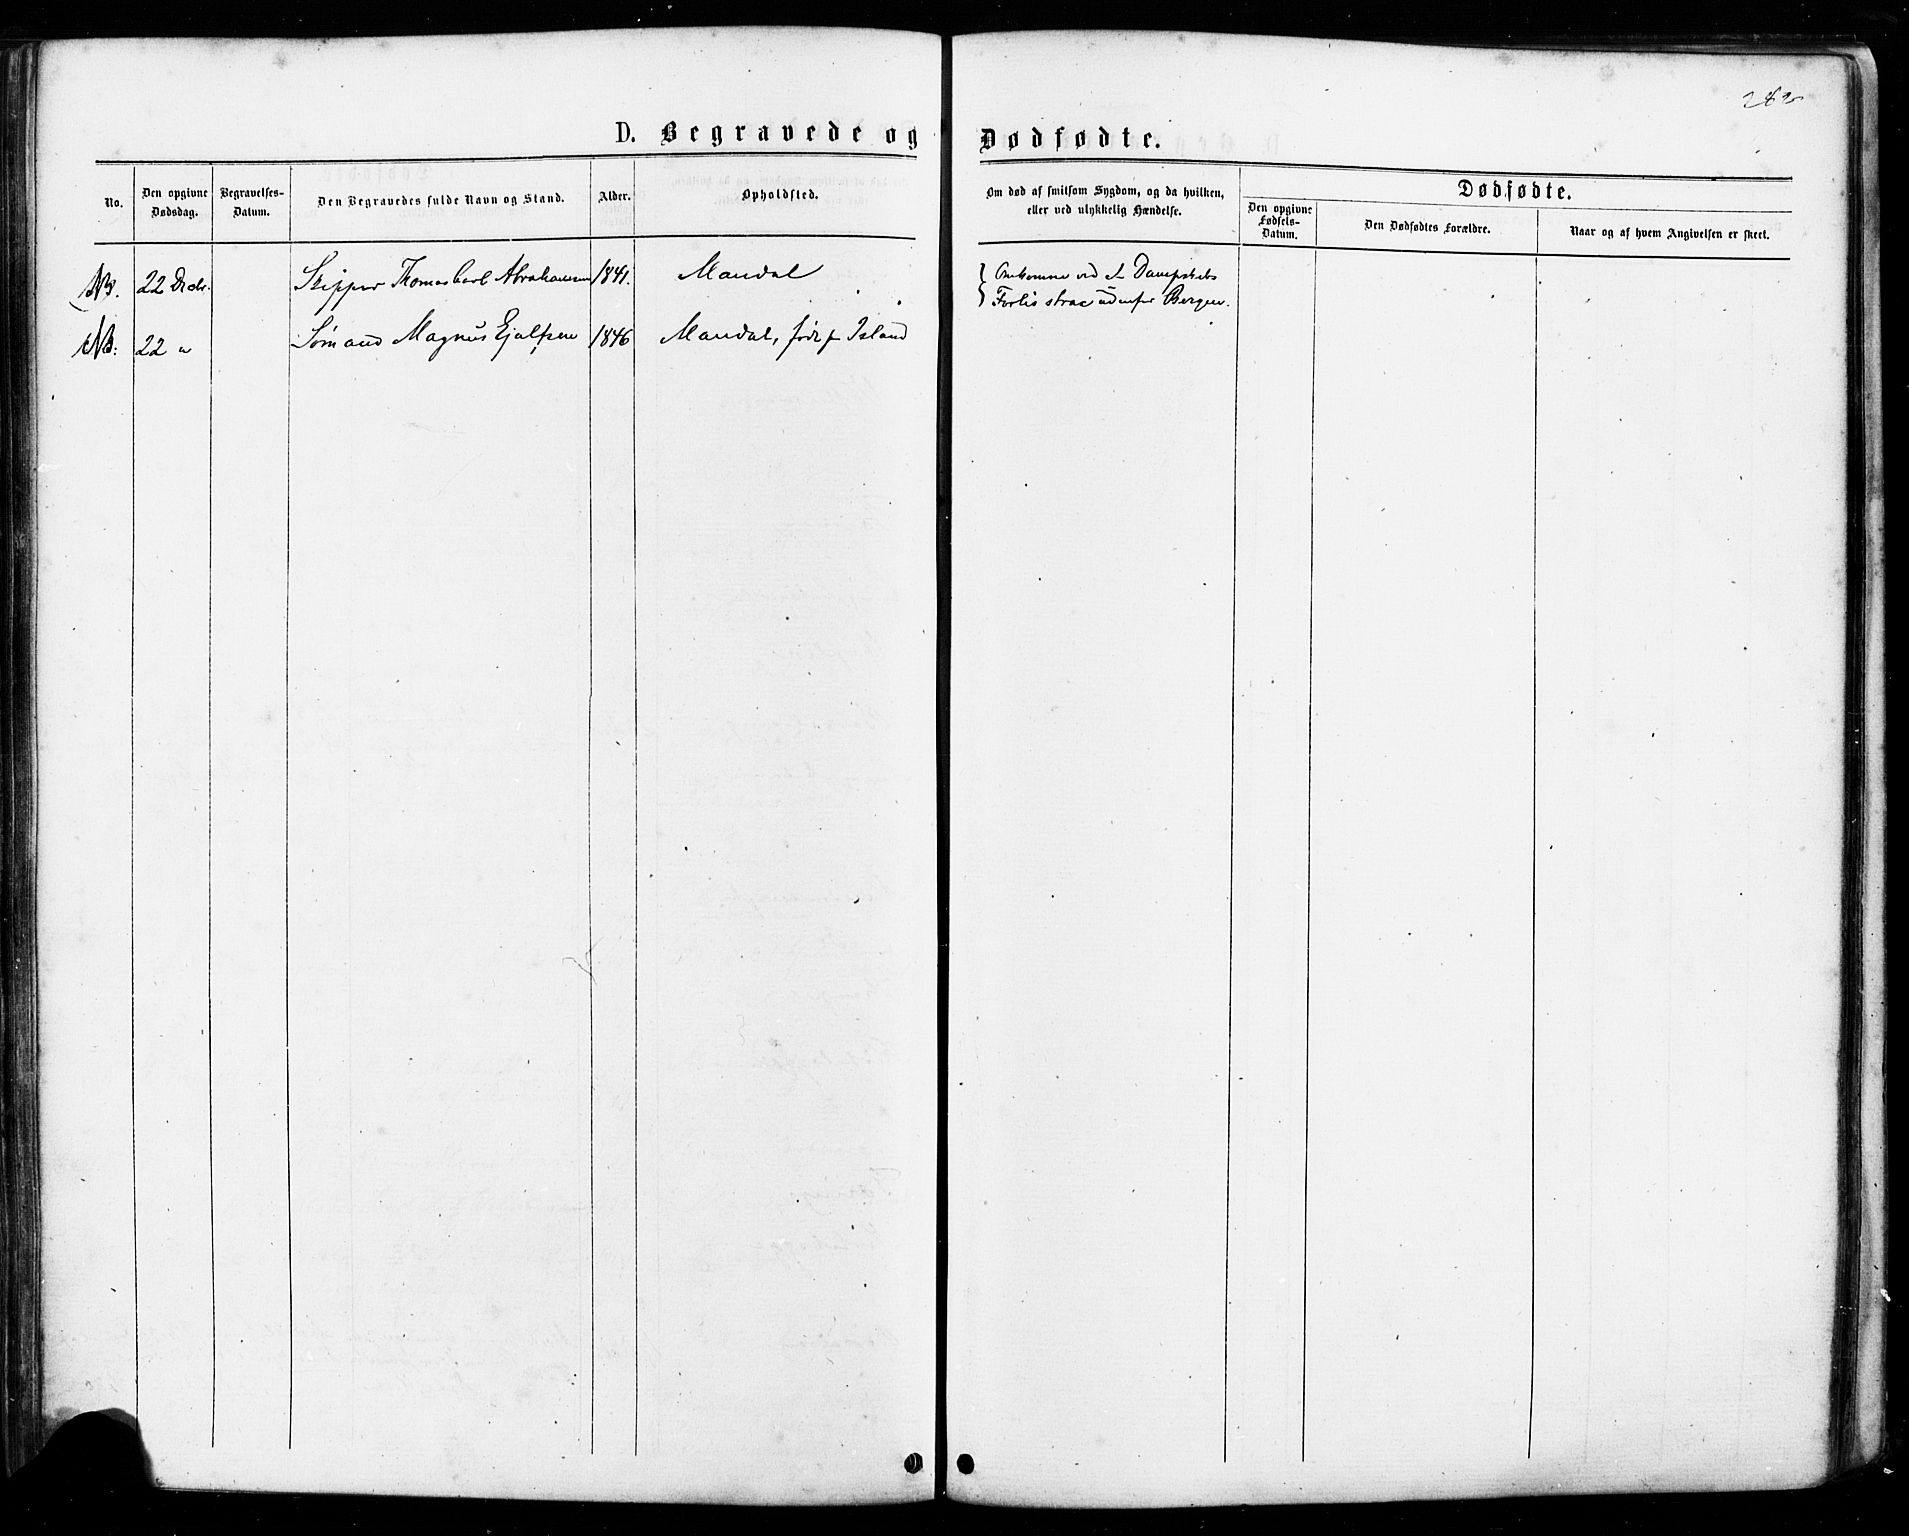 D. Begravede og Dødfødte.
No.
Den opgivne Dødsdag.
Begravelses-Datum.
Den Begravedes fulde Navn og Stand.
Alder.
Opholdsted.
Om død af smitsom Sygdom, og da hvilken, eller ved ulykkelig Hændelse.
Dødfødte.
Den opgivne Fødsels-Datum.
Den Dødfødtes Forældre.
Naar og af hvem Angivelsen er skeet.
NB. 22 Decbr. Skipper Thomas Carl Abrahamsen 1841. Mandal
Omkomne ved et Dampskibs
Forlis strax udenfor Bergen.
NB: 22 " Sømand Magnus Ejolfsen 1846 Mandal, født p Island